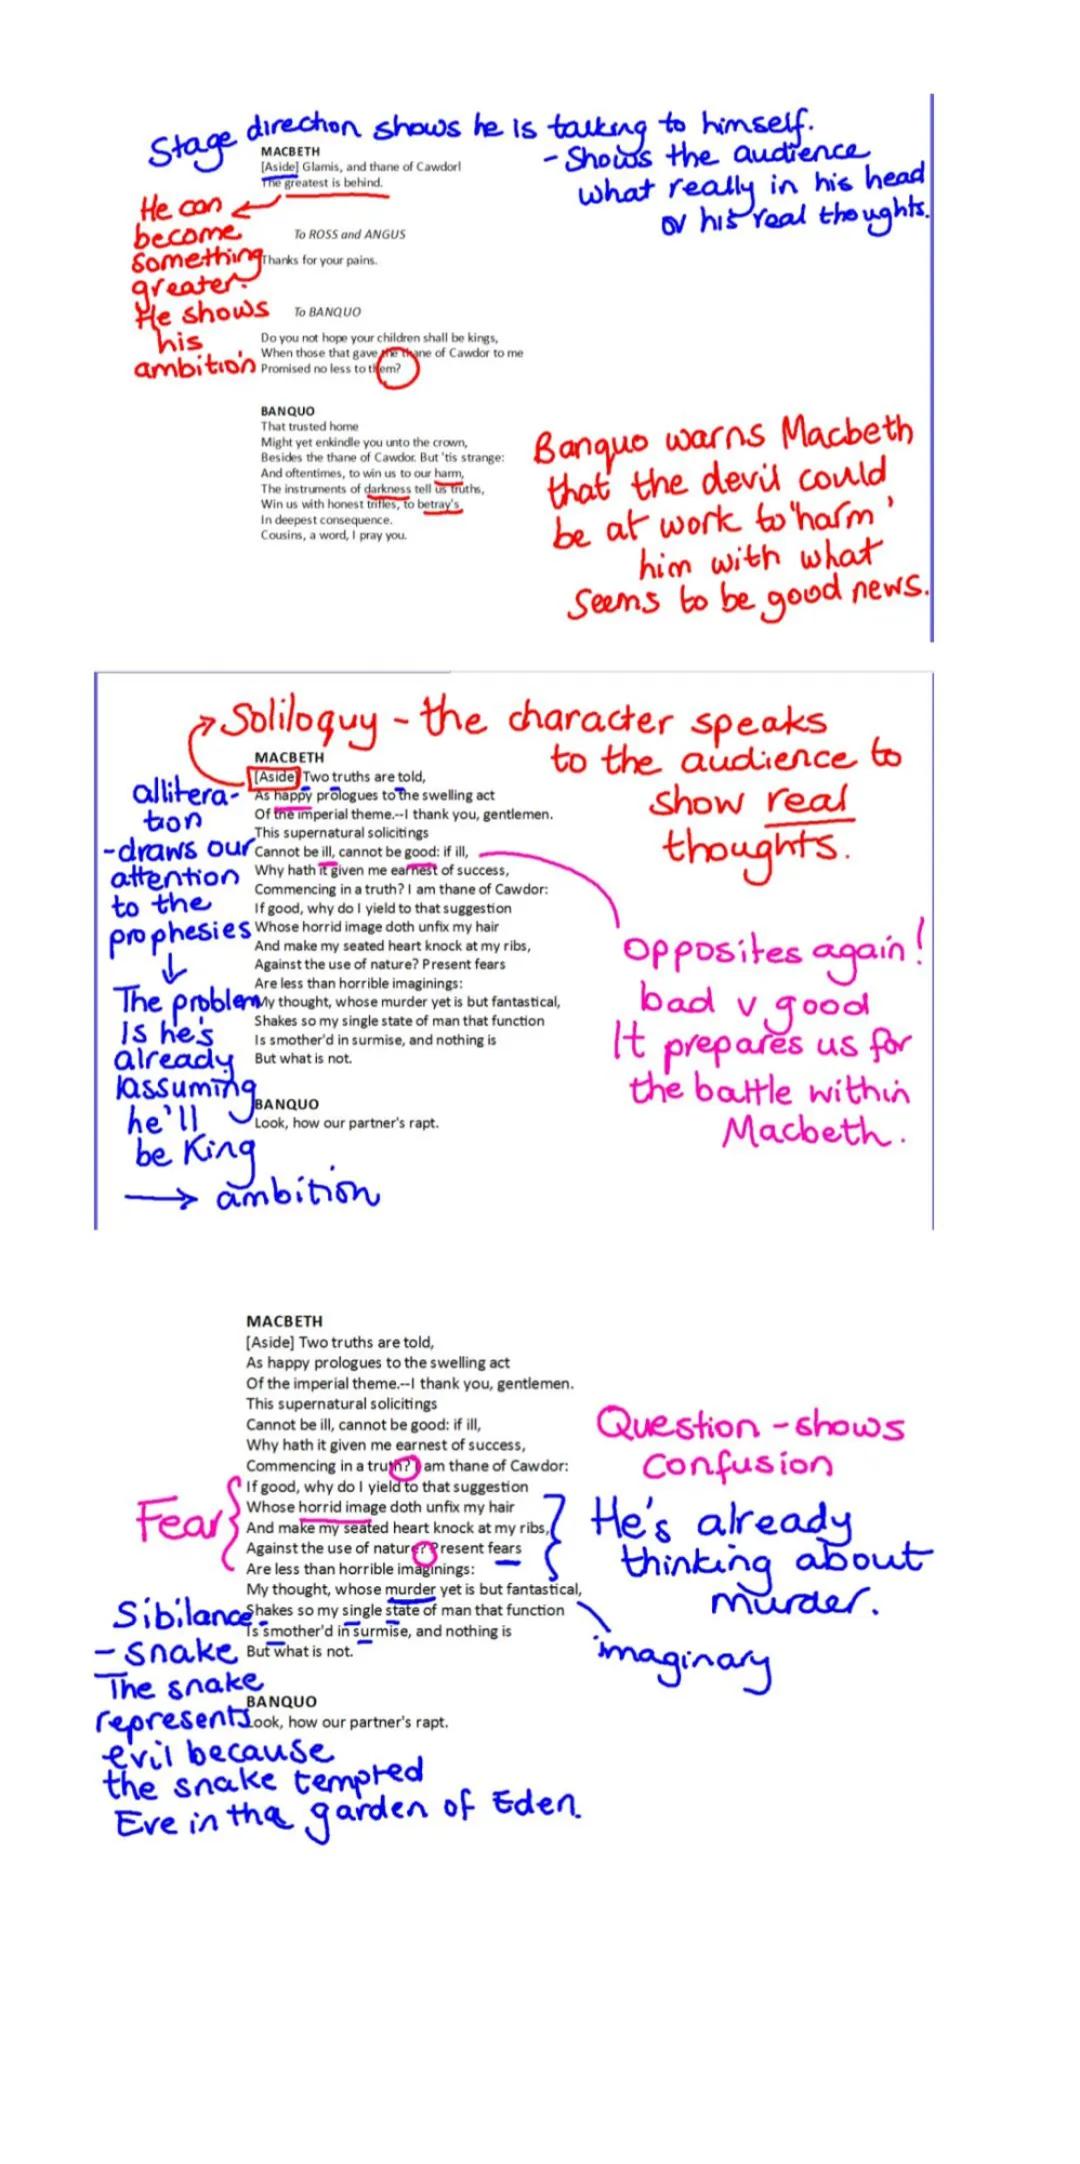 Stage direction shows he is talking to himself.
- Shows the audience
what really in his head
or his real thoughts.
MACBETH
[Aside] Glamis, and thane of Cawdor!
The greatest is behind.
He can
become
something
greater.
He shows
his
ambition
To ROSS and ANGUS
Thanks for your pains.
To BANQUO
Do you not hope your children shall be kings,
When those that gave the thane of Cawdor to me
Promised no less to them?
BANQUO
That trusted home
Might yet enkindle you unto the crown,
Besides the thane of Cawdor. But 'tis strange:
And oftentimes, to win us to our harm,
The instruments of darkness tell us truths,
Win us with honest trifles, to betray's
In deepest consequence.
Cousins, a word, I pray you.
Banquo warns Macbeth
that the devil could
be at work to 'harm'
him with what
seems to be good news.
Soliloquy - the character speaks
to the audience to
show real
thoughts.
MACBETH
[Aside] Two truths are told,
As happy prologues to the swelling act
Of the imperial theme.--I thank you, gentlemen.
This supernatural solicitings
Cannot be ill, cannot be good: if ill,
Why hath it given me earnest of success,
Commencing in a truth? I am thane of Cawdor:
If good, why do I yield to that suggestion
Whose horrid image doth unfix my hair
And make my seated heart knock at my ribs,
Against the use of nature? Present fears
Are less than horrible imaginings:
My thought, whose murder yet is but fantastical,
Shakes so my single state of man that function
Is smother'd in surmise, and nothing is
But what is not.
BANQUO
Look, how our partner's rapt.
allitera-
tion
- draws our
attention
to the
prophesies
The problem
is he's
already
assuming
he'll
be King
ambition
Opposites again!
bad v good
It prepares us for
the battle within
Macbeth.
MACBETH
[Aside] Two truths are told,
As happy prologues to the swelling act
Of the imperial theme.--I thank you, gentlemen.
This supernatural solicitings
Cannot be ill, cannot be good: if ill,
Why hath it given me earnest of success,
Commencing in a truth? I am thane of Cawdor:
If good, why do I yield to that suggestion
Whose horrid image doth unfix my hair
And make my seated heart knock at my ribs,
Against the use of nature? Present fears
Are less than horrible imaginings:
My thought, whose murder yet is but fantastical,
Shakes so my single state of man that function
Is smother'd in surmise, and nothing is
But what is not.
BANQUO
Look, how our partner's rapt.
Question - shows
confusion
Fear
He's already
thinking about
murder.
imaginary
Sibilance
- snake
The snake
represents
evil because
the snake tempted
Eve in tha garden of Eden.